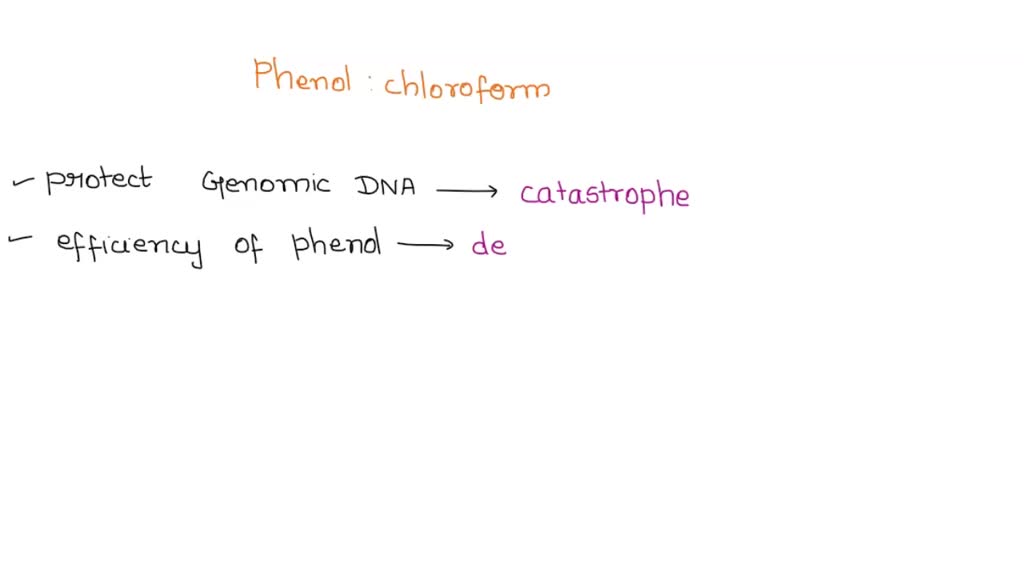 Phenol : chloroform
✓ protect Genomic DNA → catastrophe
✓ efficiency of phenol → de